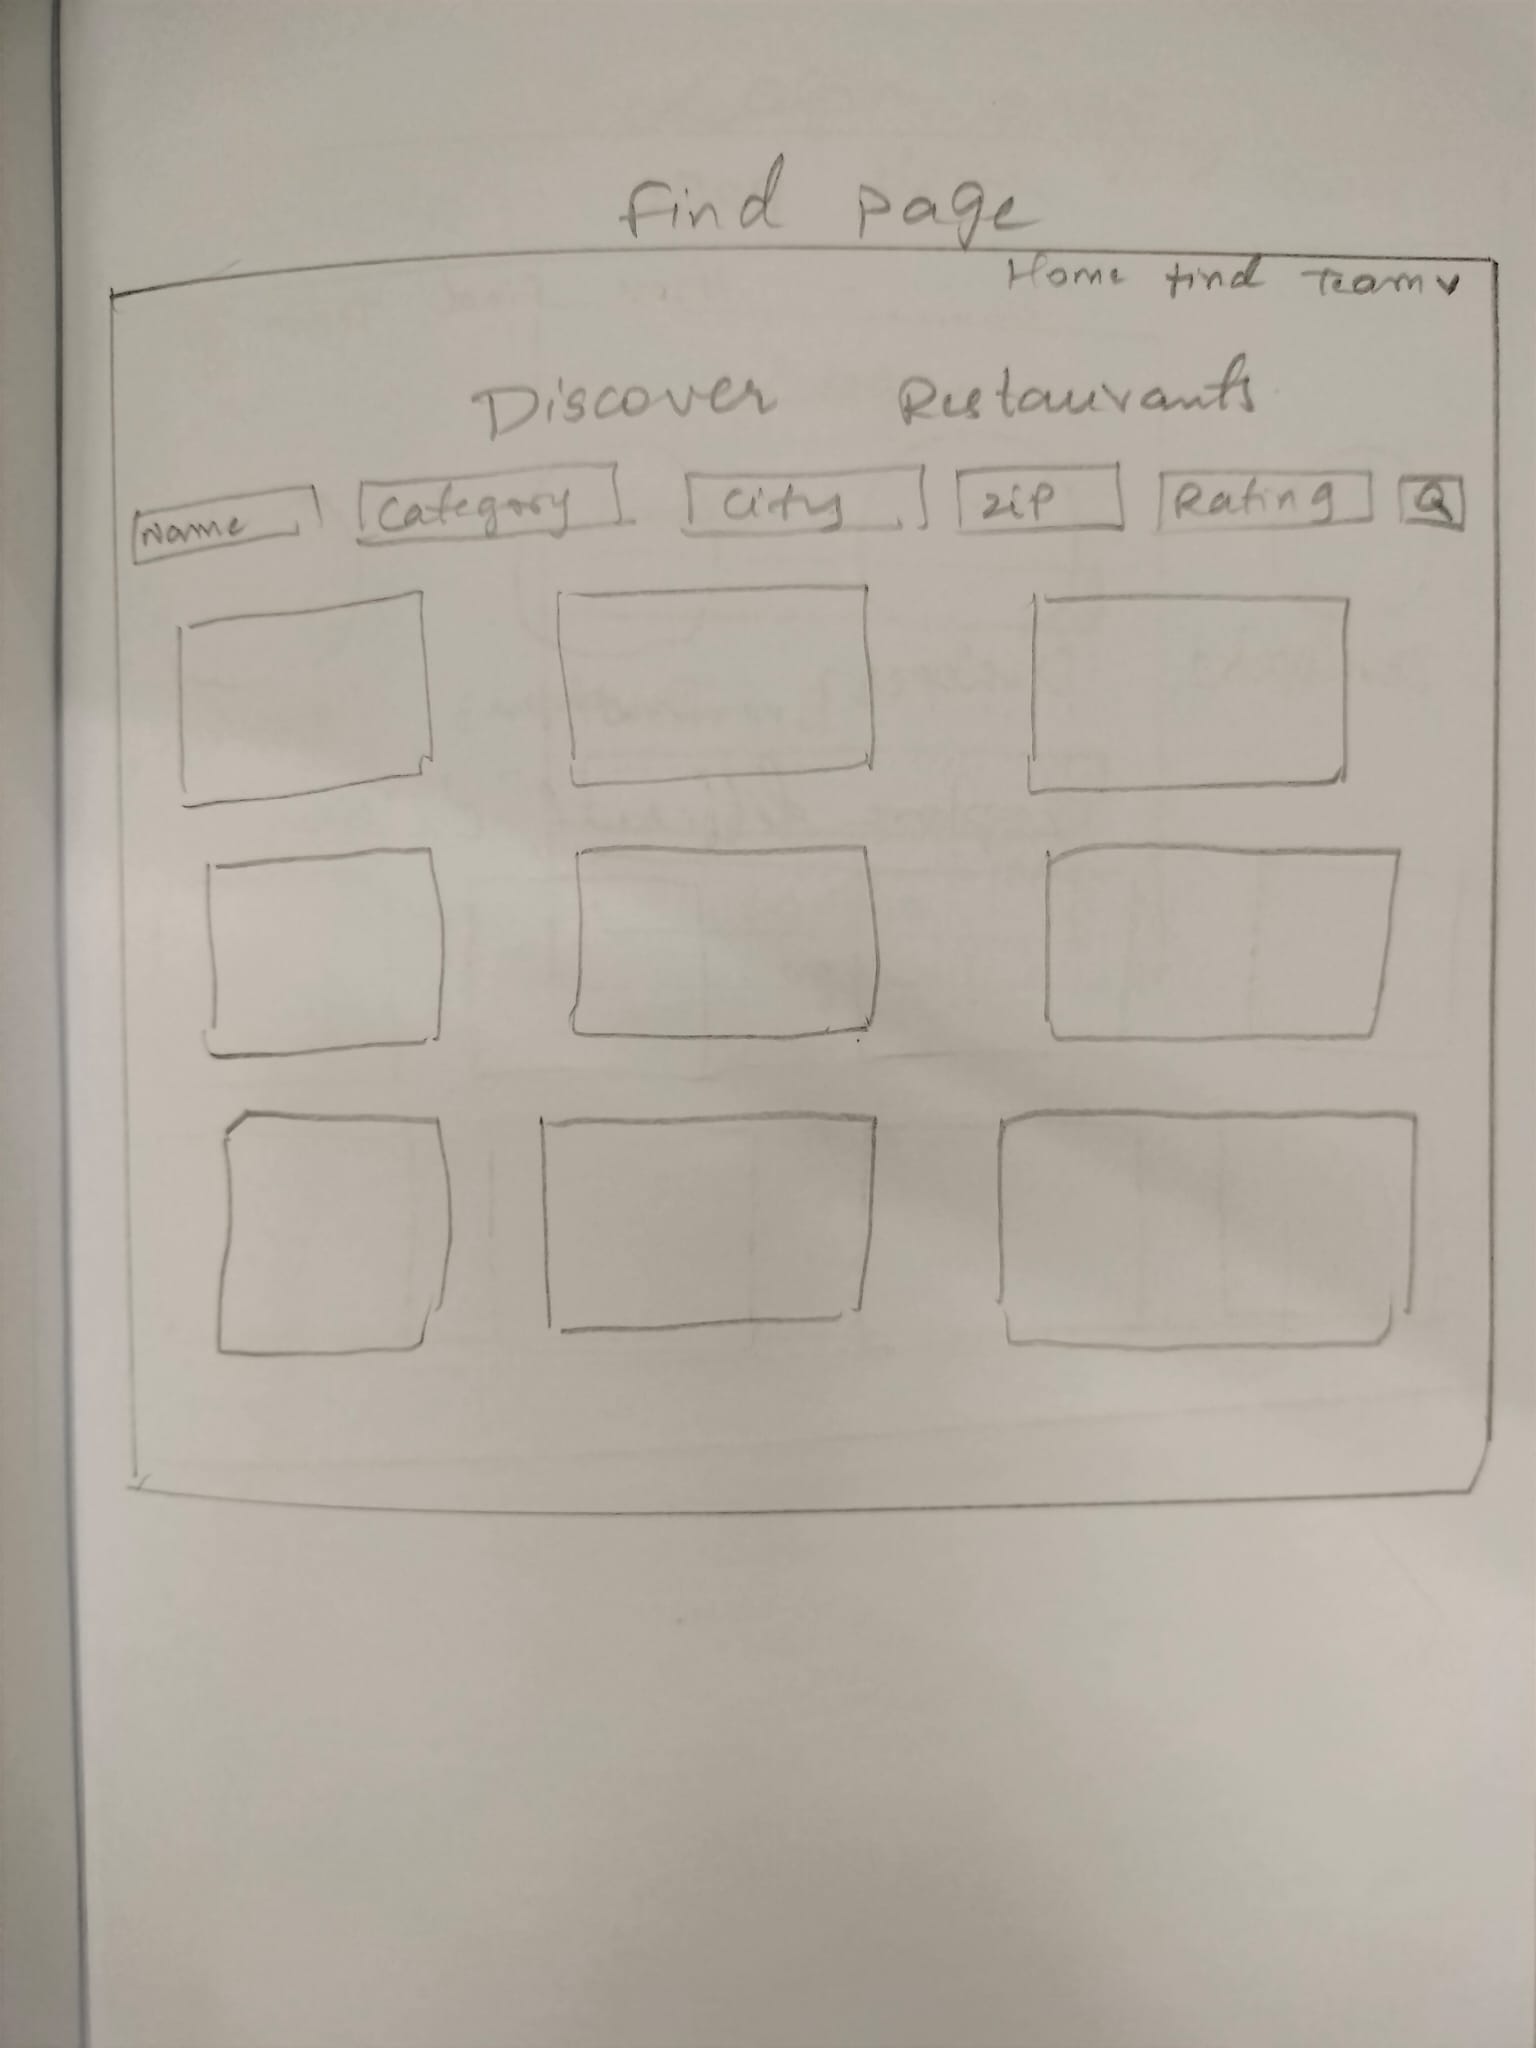 Find page
Home find Team v
Discover Restaurants
Name Category City zip Rating Q